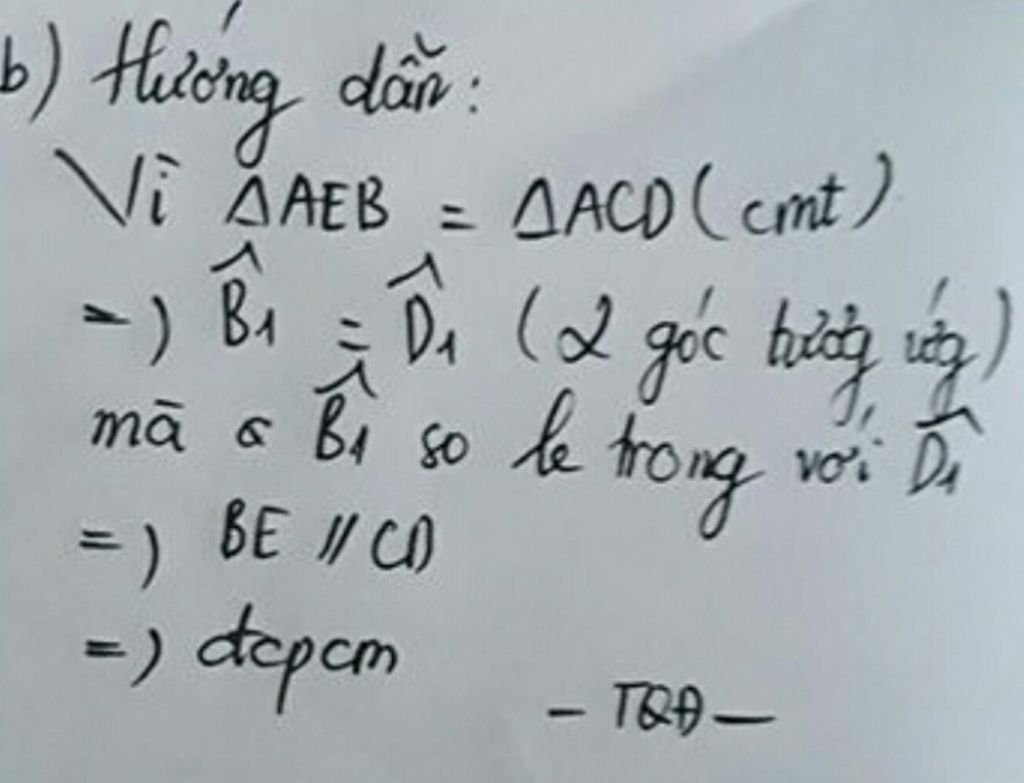 b) Hướng dẫn:
Vì ΔAEB = ΔACD (cmt)
=) B̂1 = D̂1 (2 góc tương ứng)
mà B̂1 so le trong với D̂1
=) BE // CD
=) đcpcm
- TQĐ -